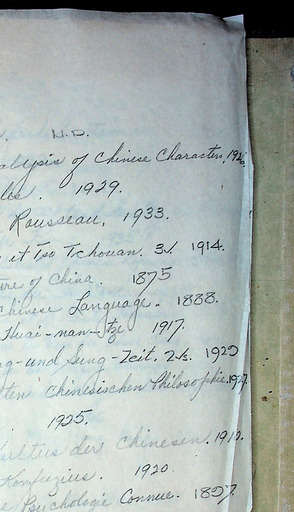 N.D.
alysis of Chinese Characters, 1926.
1929.
Rousseau, 1933.
et Tso Tchouan. 3v. 1914.
ure of China. 1875
Chinese Language. 1888.
Huai-nan-tze 1917.
ng-und Sung-Zeit, 2v.
ten Chinesischen Philosophie,
1925.
ultus der Chinesen. 1912.
Konfuzius. 1920.
e Psychologie Connue.